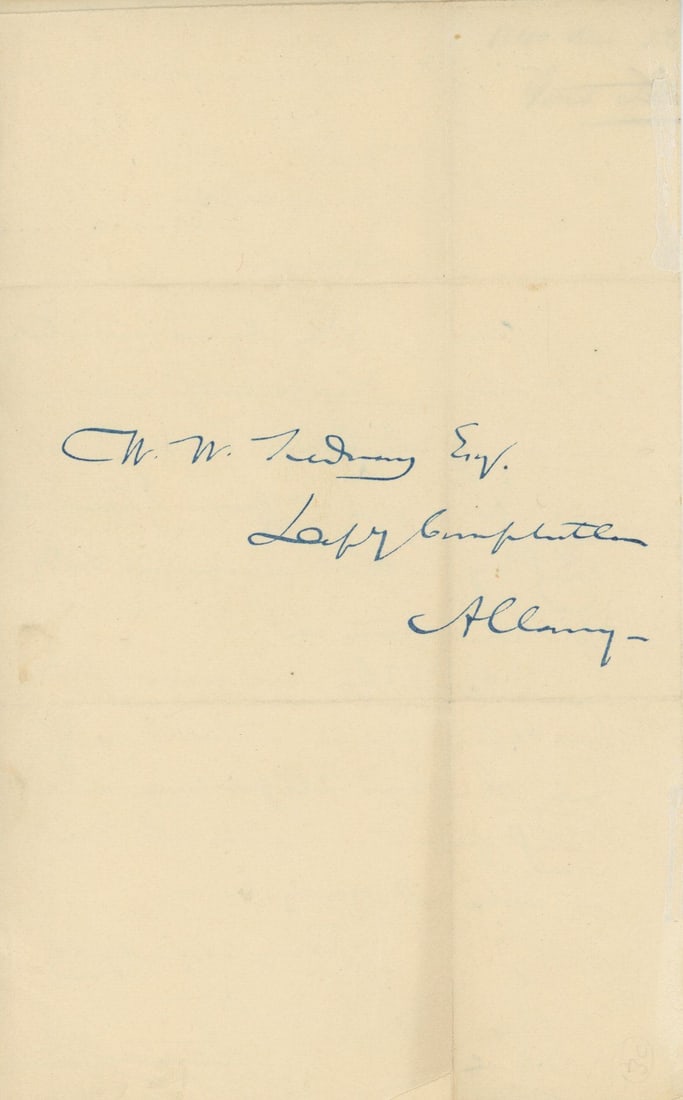 W. W. Tredway Esq.
Dep'y Comptroller
Albany -